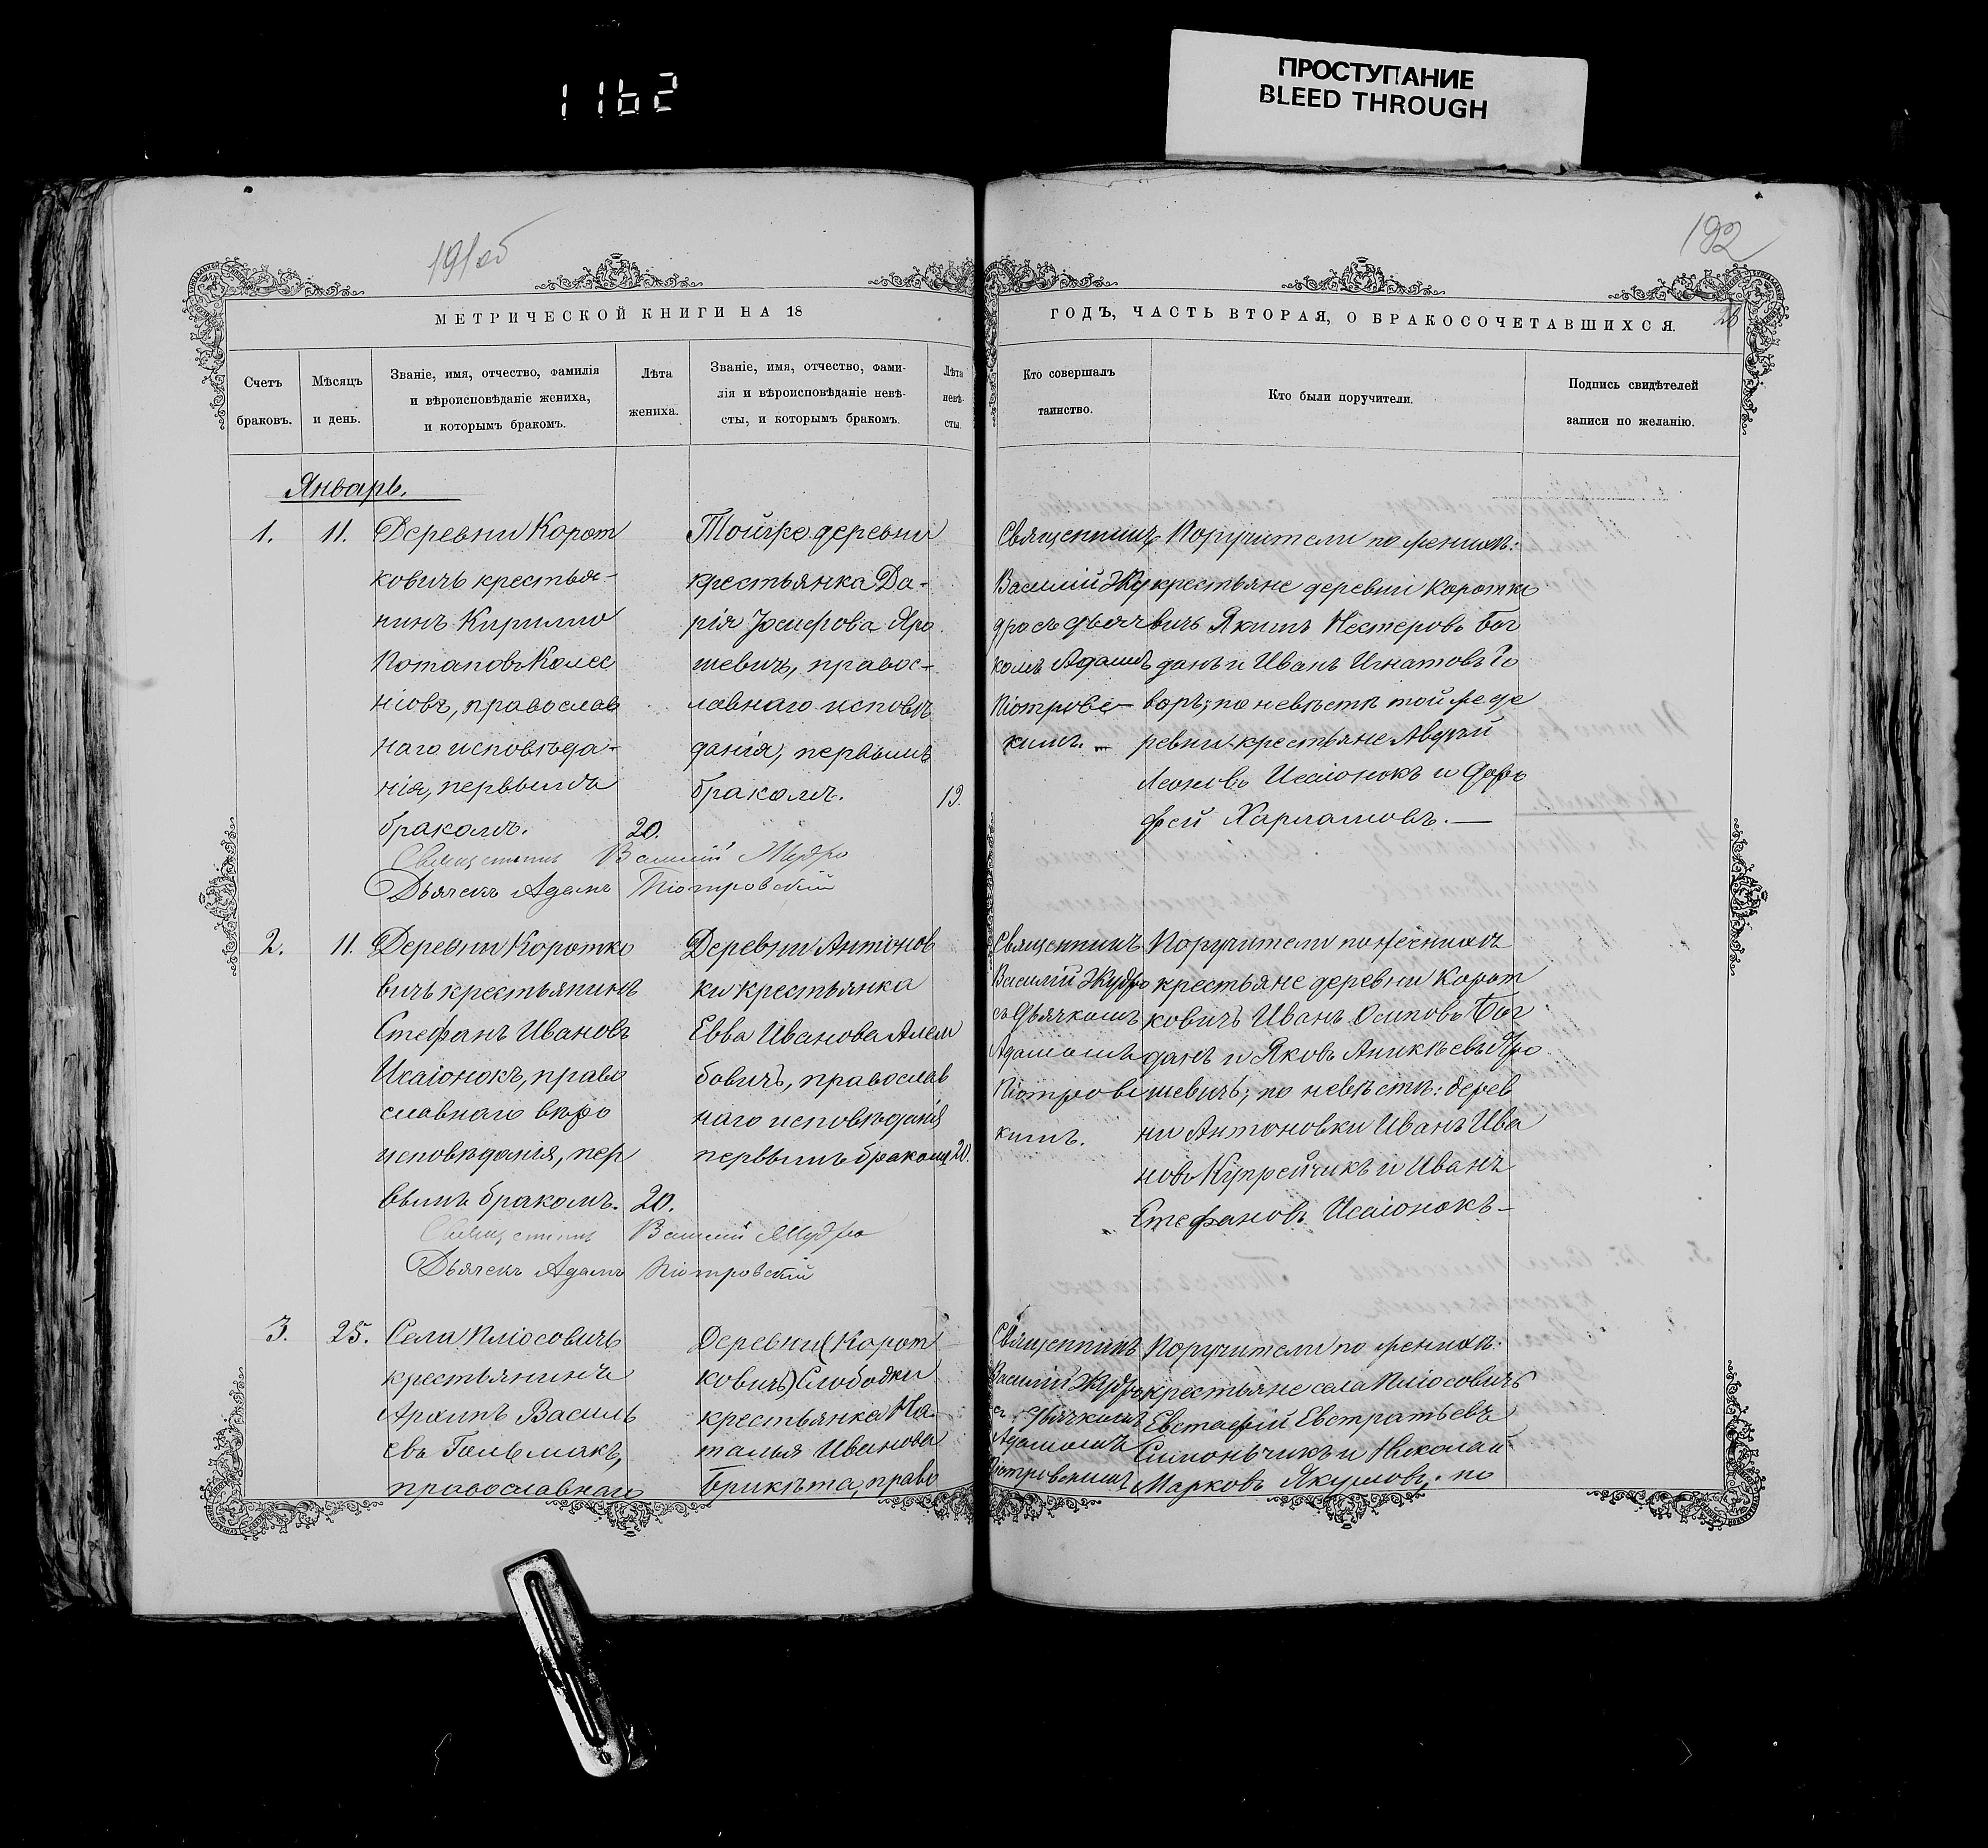 1162
ПРОСТУПАНИЕ
BLEED THROUGH
191об
192
МЕТРИЧЕСКОЙ КНИГИ НА 18
ГОДЪ, ЧАСТЬ ВТОРАЯ, О БРАКОСОЧЕТАВШИХСЯ.
Счетъ
браковъ.
Мѣсяцъ
и день.
Званіе, имя, отчество, фамилія
и вѣроисповѣданіе жениха,
и которымъ бракомъ.
Лѣта
жениха.
Званіе, имя, отчество, фами-
лія и вѣроисповѣданіе невѣ-
сты, и которымъ бракомъ.
Лѣта
невѣ-
сты.
Кто совершалъ
таинство.
Кто были поручители.
Подпись свидѣтелей
записи по желанію.
Январь.
1.
11.
Деревни Корот
ковичъ крестья-
нинъ Кирилло
Потаповъ Колес
ніовъ, православ
наго исповѣда-
нія, первымъ
бракомъ.
20.
Тойже деревни
крестьянка Да-
рія Яро
шевичъ, правос-
лавнаго исповѣ
данія, первымъ
бракомъ.
19.
Священникъ
Василій Жу
дро съ дьяч
комъ Адамомъ
Піотровс-
кимъ. -
Поручители по женихѣ:
крестьяне деревни Коротко
вичъ Якимъ Нестеровъ Бог
данъ и Иванъ Игнатовъ Го
воръ; по невѣстѣ той же де
ревни крестьяне Авдѣй
Леоновъ Исаіонокъ и Доро
фей Харламовъ. —
Священникъ Василій Жудро
Дьячекъ Адамъ Піотровскій
2.
11.
Деревни Коротко
вичъ крестьянинъ
Стефанъ Ивановъ
Исаіонокъ, право
славнаго вѣро
исповѣданія, пер
вымъ бракомъ.
20.
Деревни Антонов
ки крестьянка
Евва Иванова Алем
бовичъ, православ
наго исповѣданія
первымъ бракомъ
20.
Священникъ
Василій Жудро
съ дьячкомъ
Адамомъ
Піотровс
кимъ.
Поручители по женихѣ
крестьяне деревни Корот
ковичъ Иванъ Осиповъ Бог
данъ и Яковъ Аникѣевъ Яро
шевичъ; по невѣстѣ: дерев
ни Антоновки Иванъ Ива
новъ Купрейчикъ и Иванъ
Стефановъ Исаіонокъ —
Священникъ Василій Жудро
Дьячекъ Адамъ Піотровскій
3.
25.
Села Пліосовичъ
крестьянинъ
Архипъ Василь
евъ Гольмакъ,
православнаго
Деревни (Корот
ковичъ) Слободки
крестьянка На-
талья Иванова
Брикѣта, право
Священникъ
Василій Жудро
съ дьячкомъ
Адамомъ
Піотровскимъ
Поручители по женихѣ:
крестьяне села Пліосовичъ
Евстафій Евстратьевъ
Симоньчикъ и Николай
Марковъ Якушовъ; по